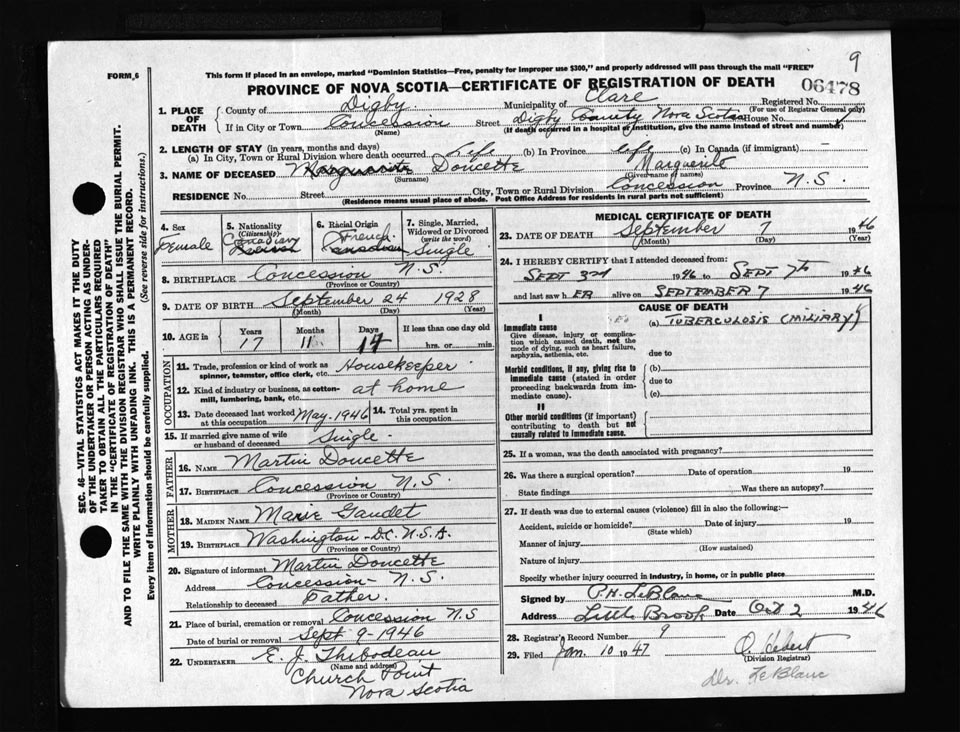 9
FORM 6
This form if placed in an envelope, marked "Dominion Statistics—Free, penalty for improper use $300," and properly addressed will pass through the mail "FREE"
PROVINCE OF NOVA SCOTIA—CERTIFICATE OF REGISTRATION OF DEATH
06478
1. PLACE OF DEATH
County of Digby Municipality of Clare Registered No.
(For use of Registrar General only)
If in City or Town Concession Street Digby County Nova Scotia House No.
(Name) (If death occurred in a hospital or institution, give the name instead of street and number)
2. LENGTH OF STAY (in years, months and days)
(a) In City, Town or Rural Division where death occurred Life (b) In Province life (c) In Canada (if immigrant) —
3. NAME OF DECEASED Marguerite Doucette Marguerite
(Surname) (Given name or names)
RESIDENCE No. Street City, Town or Rural Division Concession Province N.S.
(Residence means usual place of abode. Post Office Address for residents in rural parts not sufficient)
SEC. 46—VITAL STATISTICS ACT MAKES IT THE DUTY
OF THE UNDERTAKER OR PERSON ACTING AS UNDER-
TAKER TO OBTAIN ALL THE PARTICULARS REQUIRED
IN THE "CERTIFICATE OF REGISTRATION OF DEATH"
AND TO FILE THE SAME WITH THE DIVISION REGISTRAR WHO SHALL ISSUE THE BURIAL PERMIT.
WRITE PLAINLY WITH UNFADING INK. THIS IS A PERMANENT RECORD.
Every item of information should be carefully supplied. (See reverse side for instructions.)
4. Sex Female
5. Nationality (Citizenship) Canadian
6. Racial Origin French
7. Single, Married, Widowed or Divorced (write the word) Single
8. BIRTHPLACE Concession N.S.
(Province or Country)
9. DATE OF BIRTH September 24 1928
(Month) (Day) (Year)
10. AGE in Years Months Days If less than one day old
17 11 14 hrs. or min.
OCCUPATION
11. Trade, profession or kind of work as spinner, teamster, office clerk, etc. Housekeeper
12. Kind of industry or business, as cotton-mill, lumbering, bank, etc. at home
13. Date deceased last worked at this occupation May 1946 14. Total yrs. spent in this occupation
15. If married give name of wife or husband of deceased Single.
FATHER
16. NAME Martin Doucette
17. BIRTHPLACE Concession N.S.
(Province or Country)
MOTHER
18. MAIDEN NAME Marie Gaudet
19. BIRTHPLACE Washington - D.C. U.S.A.
(Province or Country)
20. Signature of informant Martin Doucette
Address Concession - N.S.
Relationship to deceased Father.
21. Place of burial, cremation or removal Concession N.S
Date of burial or removal Sept 9 - 1946
22. UNDERTAKER E. J. Thibodeau
(Name and address)
Church Point
Nova Scotia
MEDICAL CERTIFICATE OF DEATH
23. DATE OF DEATH September 7 1946
(Month) (Day) (Year)
24. I HEREBY CERTIFY that I attended deceased from:
SEPT 3rd 1946 to SEPT 7th 1946
and last saw her alive on SEPTEMBER 7 1946
CAUSE OF DEATH
I
Immediate cause
Give disease, injury or complication which caused death, not the mode of dying, such as heart failure, asphyxia, asthenia, etc.
(a) TUBERCULOSIS (MILIARY)
due to
Morbid conditions, if any, giving rise to immediate cause (stated in order proceeding backwards from immediate cause)
(b)
due to
(c)
II
Other morbid conditions (if important) contributing to death but not causally related to immediate cause.
25. If a woman, was the death associated with pregnancy?
26. Was there a surgical operation? Date of operation 19
State findings Was there an autopsy?
27. If death was due to external causes (violence) fill in also the following:—
Accident, suicide or homicide? Date of injury 19
(State which)
Manner of injury
(How sustained)
Nature of injury
Specify whether injury occurred in industry, in home, or in public place
Signed by P.H. LeBlanc M.D.
Address Little Brook Date Oct 2 1946
28. Registrar's Record Number 9
29. Filed Jan. 10 1947
(Division Registrar)
Drs. LeBlanc